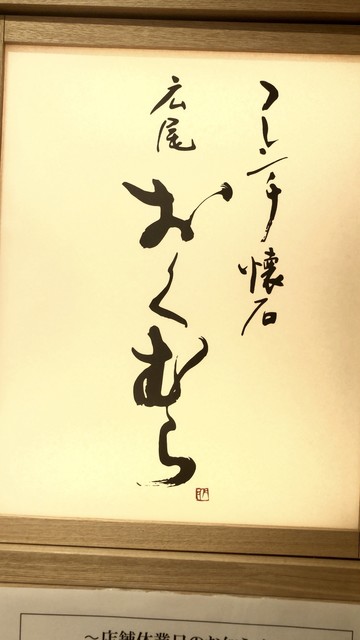 フレンチ懐石
広尾
おくむら
〜店舗休業日のお知らせ